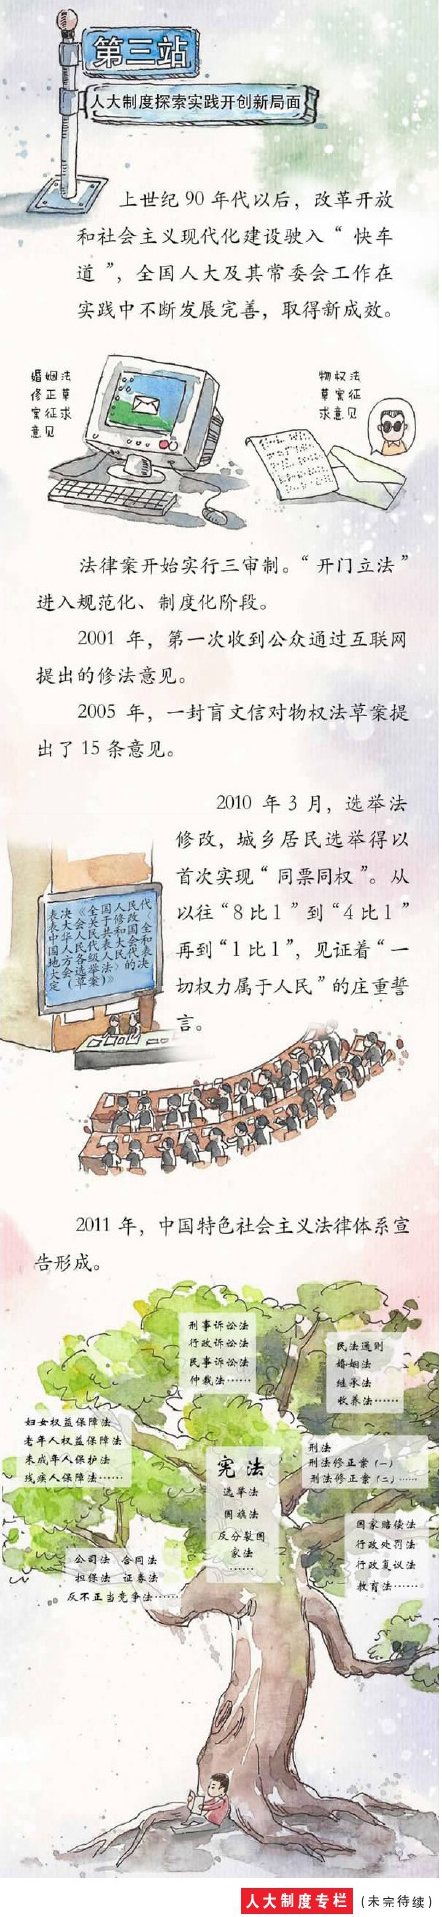 第三站
人大制度探索实践开创新局面
上世纪90年代以后，改革开放
和社会主义现代化建设驶入“快车
道”，全国人大及其常委会工作在
实践中不断发展完善，取得新成效。
婚姻法
修正草
案征求
意见
物权法
草案征
求意见
法律案开始实行三审制。“开门立法”
进入规范化、制度化阶段。
2001 年，第一次收到公众通过互联网
提出的修法意见。
2005 年，一封盲文信对物权法草案提
出了15条意见。
2010 年3月，选举法
修改，城乡居民选举得以
首次实现“同票同权”。从
以往“8比1”到“4比1”
再到“1比1”，见证着“一
切权力属于人民”的庄重誓
言。
表决《全国人民代
表大会关于修改〈
中华人民共和国全
国人民代表大会和
地方各级人民代表
大会选举法〉的决
定(草案)》
2011年，中国特色社会主义法律体系宣
告形成。
刑事诉讼法
行政诉讼法
民事诉讼法
仲裁法……
民法通则
婚姻法
继承法
收养法……
妇女权益保障法
老年人权益保障法
未成年人保护法
残疾人保障法……
宪法
选举法
国旗法
反分裂国
家法
……
刑法
刑法修正案（一）
刑法修正案（二）……
国家赔偿法
行政处罚法
行政复议法
教育法……
公司法 合同法
担保法 证券法
反不正当竞争法……
人大制度专栏（未完待续）